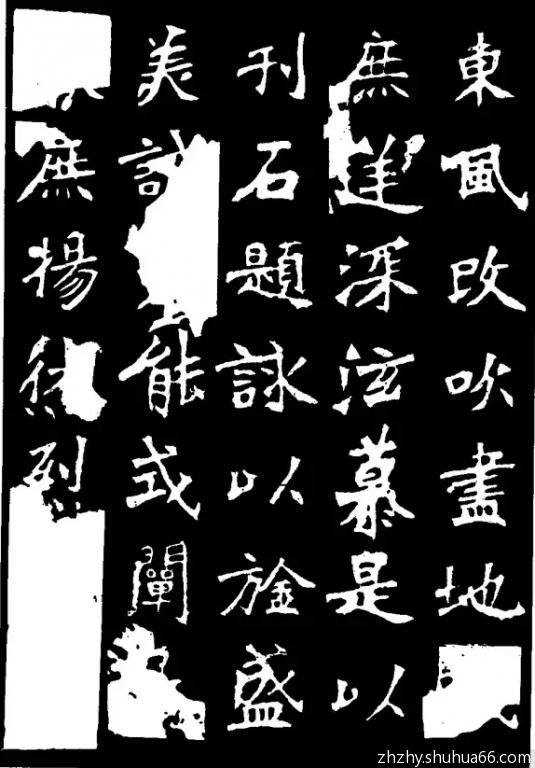 東風改吹盡地
庶深泫慕是以
刊石題詠以旌盛
美能式闡
庶揚烈
zhzhy.shuhua66.com